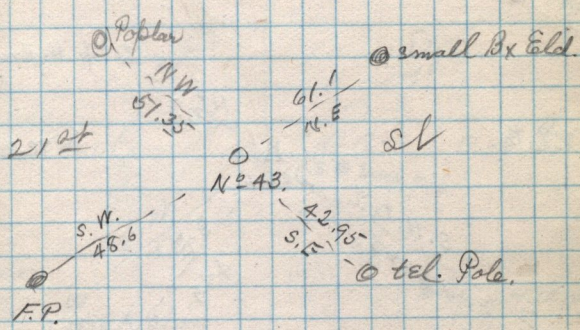 Poplar
small Bx Eld.
N W
57.35
61.1
N.E
21st
St
No 43.
S.W.
48.6
42.95
S.E
tel. Pole.
F.P.